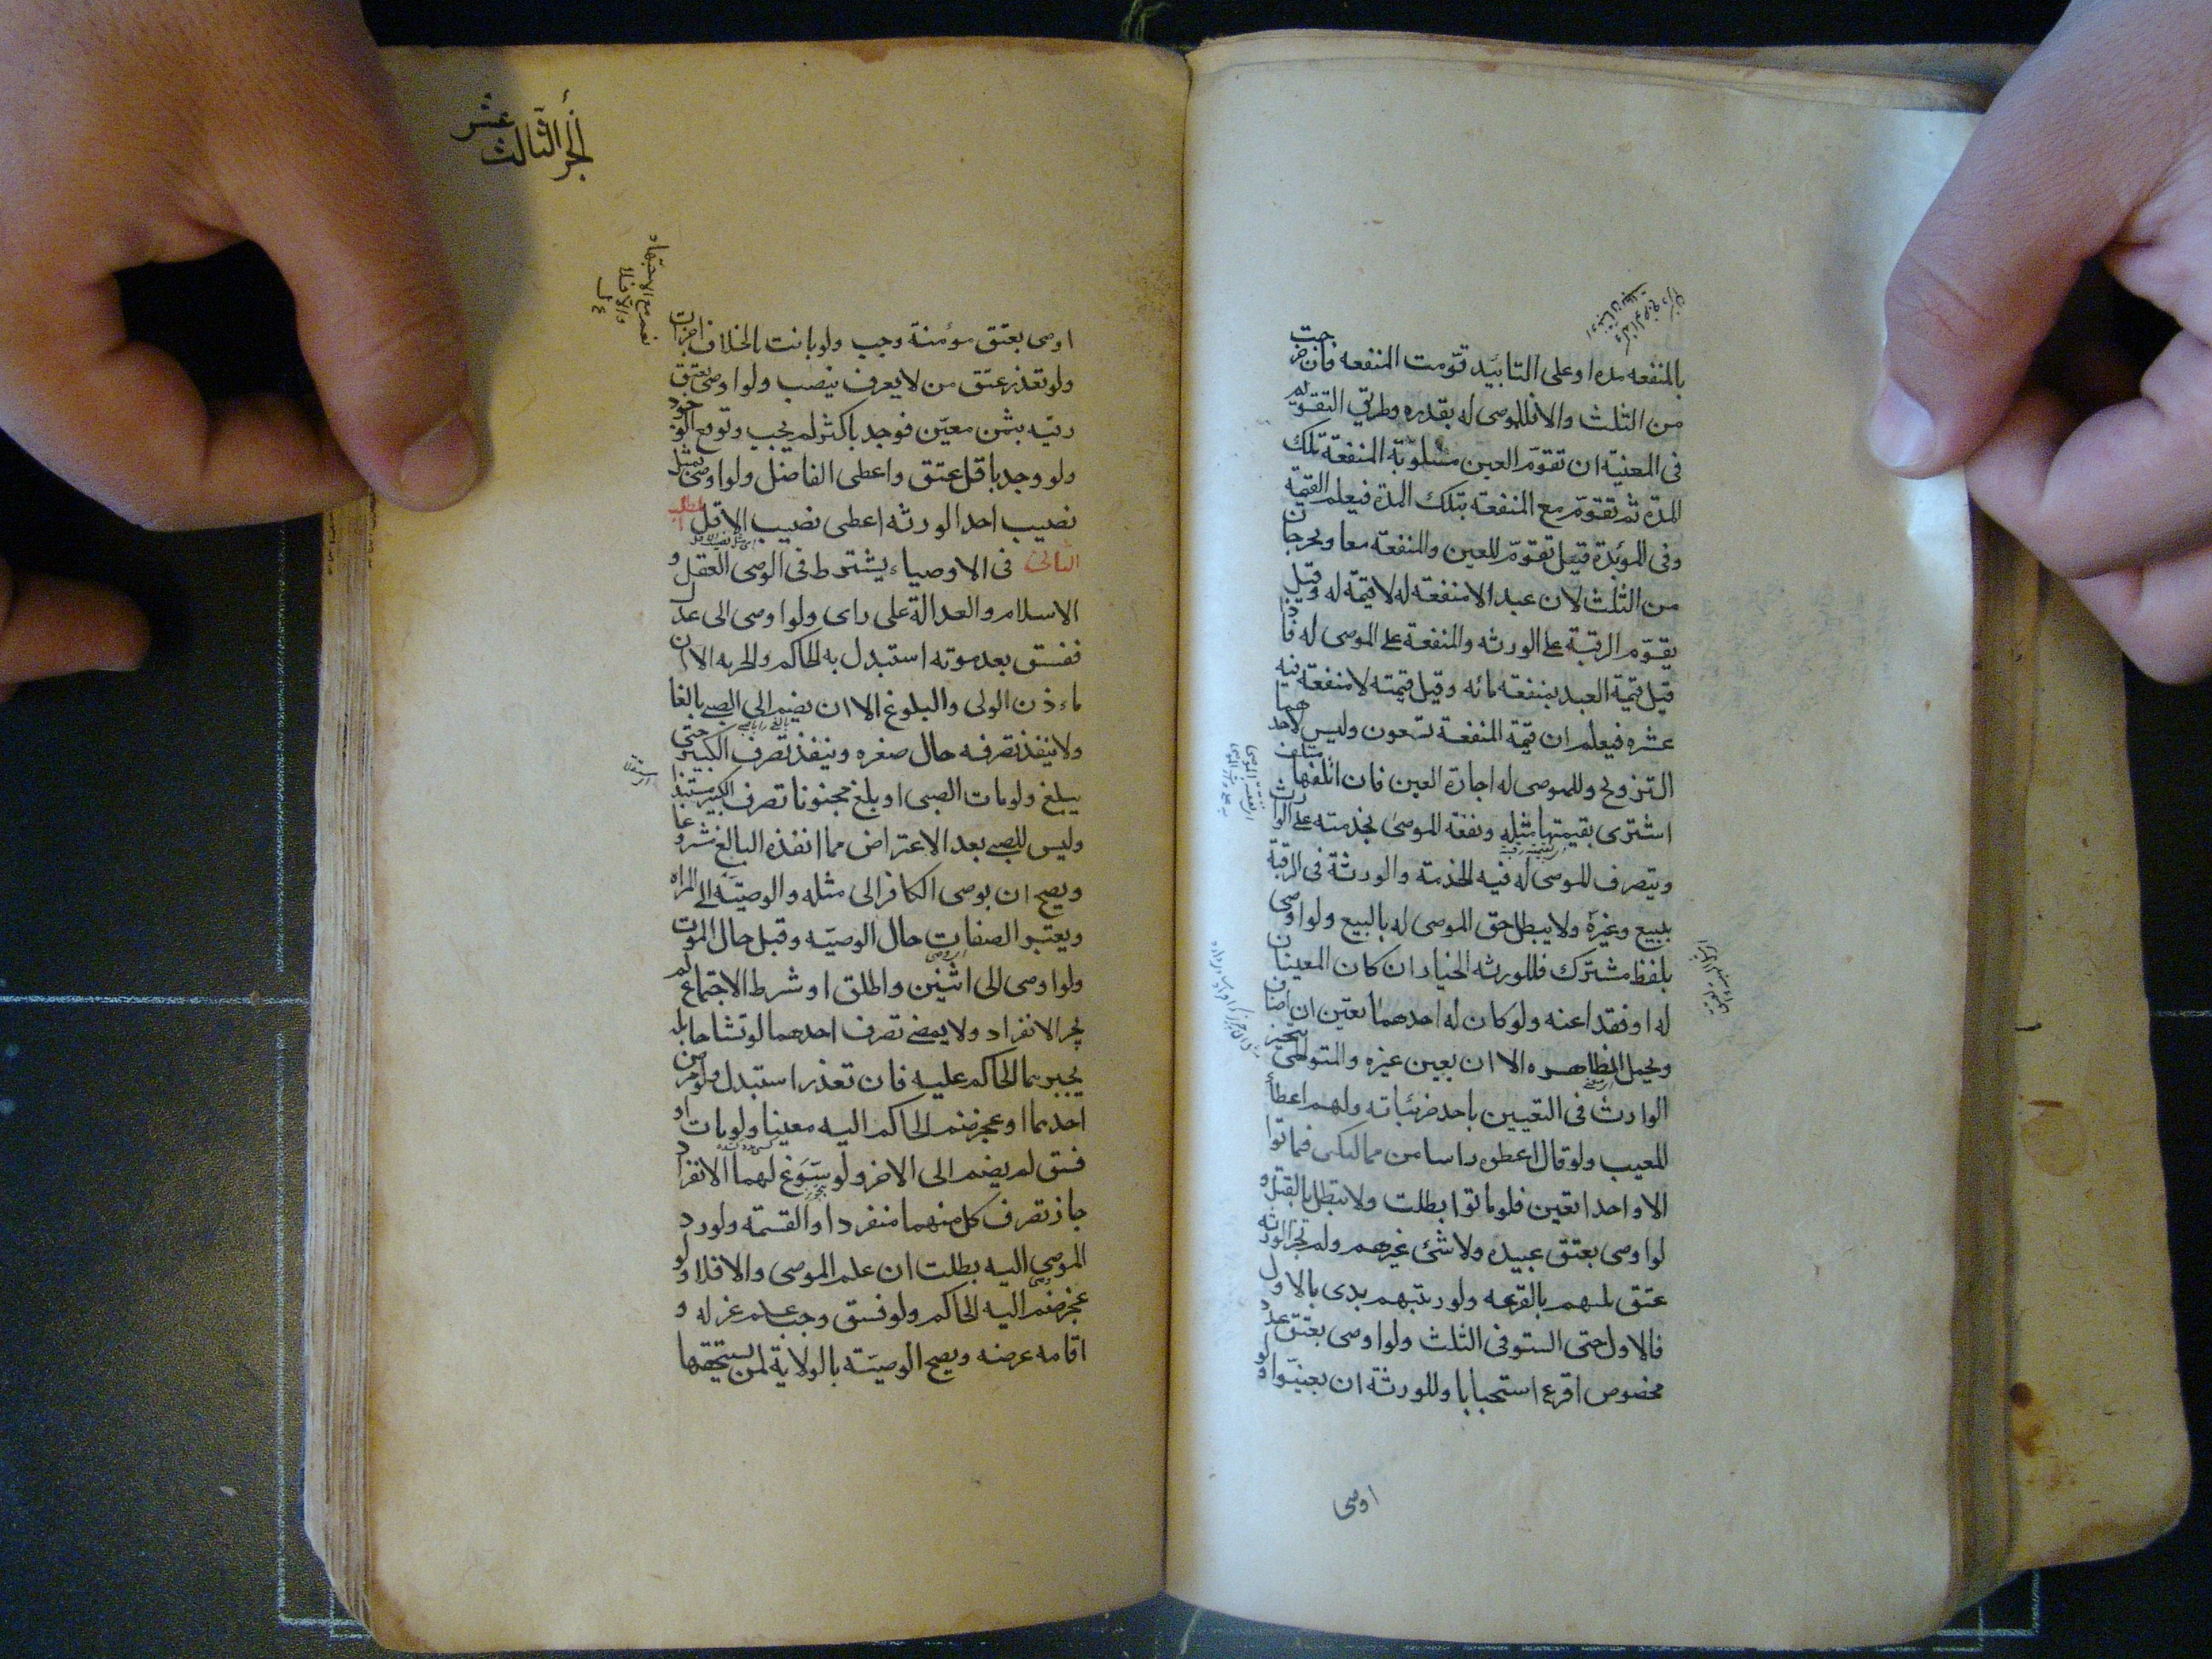 بالمنفعه مده او على التابيد قوّمت المنفعه فان خرجت
من الثلث والا فللموصى له بقدره وطريق التقويم
فى المعنية ان تقوّم العين مسلوبة المنفعة تلك
المدّة ثم تقوّم مع المنفعة بتلك المدة فيعلم القيمة
وفى المؤبّدة قيل تقوّم للعين والمنفعة معا ويخرجان
من الثلث لان عبد الا منفعة له لا قيمة له وقيل
يقوّم الرقبة على الورثه والمنفعة على الموصى له فاذا
قيل قيمة العبد بمنفعته مائه وقيل قيمته لا منفعة فيه
عشره فيعلم ان قيمة المنفعة تسعون وليس لاحدهما
التزويج وللموصى له اجارة العين فان اتلفها متلف
اشترى بقيمتها مثله ونفقة الموصى بخدمته على الوارث
ويتصرف للموصى له فيه الخدمة والورثة فى الرقبة
ببيع وغيره ولا يبطل حق الموصى له بالبيع ولو اوصى
بلفظ مشترك فللورثه الخيار ان كان المعينان
له او فقدا عنه ولو كان له احدهما تعيّن ان اضاف
ويحمل الظاهره الا ان يعين غيره والمتواطى يتخير
الوارث فى التعيين باحد جزئياته ولهم اعطاء
المعيب ولو قال اعطوه راسا من مماليكى فماتوا
الا واحدا تعين فلو ماتوا بطلت ولا تبطل بالقتل و
لو اوصى بعتق عبيده ولا شئ غيرهم ولم تجز الورثه
عتق ثلثهم بالقرعه ولو رتبهم بدى بالاول
فالاول حتى يستوفى الثلث ولو اوصى بعتق عدد
مخصوص اقرع استحبابا وللورثة ان يعينوا ولو
اوصى
الجزء الثالث عشر
نعم مع الاجتهاد
والا فلا
اوصى بعتق مؤمنة وجب ولو بانت بالخلاف اجزات
ولو تعذر عتق من لا يعرف بنصب ولو اوصى بعتق
رقبه بثمن معيّن فوجد باكثر لم يجب وتوقع الوجود
ولو وجد باقل عتق واعطى الفاضل ولو اوصى بمثل
نصيب احد الورثه اعطى نصيب الاقل المطلب
الثانى فى الاوصياء يشترط فى الوصى العقل و
الاسلام والعدالة على راى ولو اوصى الى عدل
ففسق بعد موته استبدل به الحاكم والحريه الا ان
ياءذن الولى والبلوغ الا ان يضم الى الصبى بالغا
ولا ينفذ تصرفه حال صغره وينفذ تصرف الكبير حتى
يبلغ ولو مات الصبى او بلغ مجنونا تصرف الكبير مستبدا
وليس للصبى بعد الاعتراض مما انفذه البالغ مشروعا
ويصح ان يوصى الكافر الى مثله والوصيّة الى المراه
ويعتبر الصفات حال الوصيّه وقيل حال الموت
ولو اوصى الى اثنين واطلق او شرط الاجتماع لم
يجز الانفراد ولا يمضى تصرف احدهما لو تشاحا بل
يجبرهما الحاكم عليه فان تعذر استبدل ولو مرض
احدهما او عجز ضم الحاكم اليه معينا ولو مات او
فسق لم يضم الى الاخر ولو سوّغ لهما الانفراد
جاز تصرف كل منهما منفردا والقسمة ولو رد
الموصى اليه بطلت ان علم الموصى والا فلا ولو
عجز ضم اليه الحاكم ولو فسق وجب عزله و
اقامه عوضه ويصح الوصيّة بالولاية لمن يستحقها